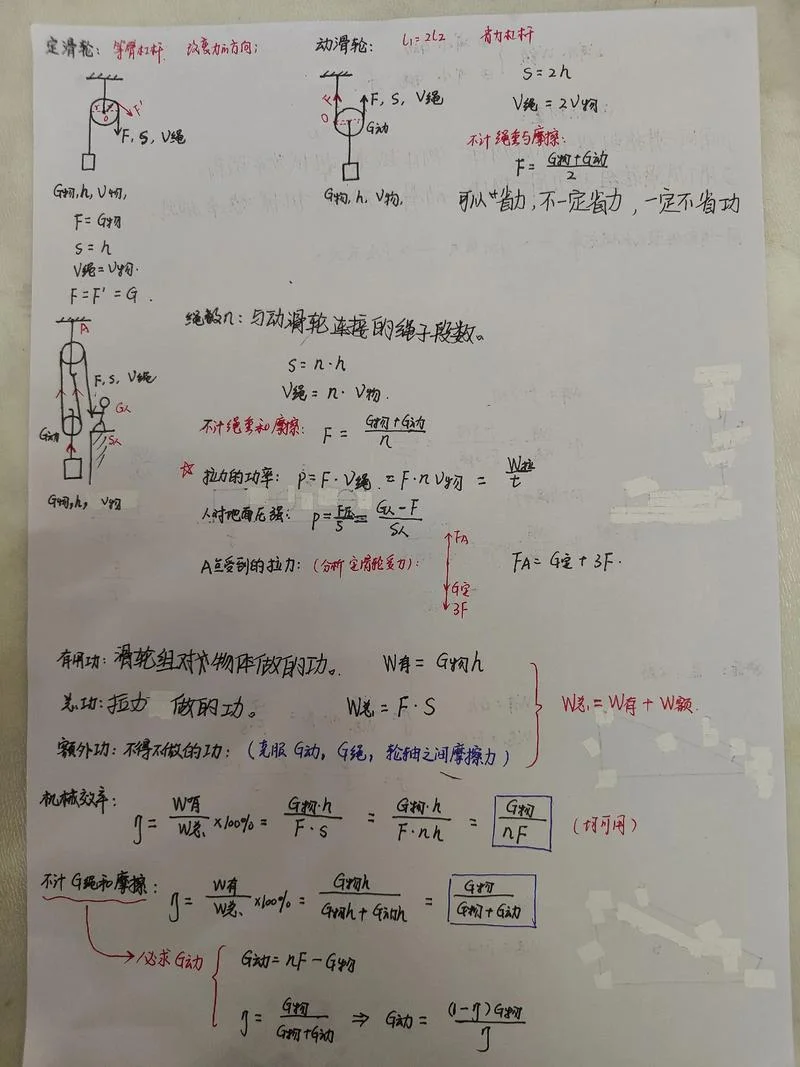 定滑轮： 等臂杠杆 改变力的方向；
F'
O
F, S, V绳
G物, h, V物,
F = G物
S = h
V绳 = V物.
F = F' = G .
动滑轮： l₁ = 2l₂ 省力杠杆
F
F, S, V绳
O
G动
G物, h, V物,
S = 2h
V绳 = 2V物
不计绳重与摩擦：
F = (G物+G动)/2
可以省力，不一定省力，一定不省功
A
F, S, V绳
G人
G动
S人
G物, h, V物
绳数n：与动滑轮连接的绳子段数。
S = n·h
V绳 = n· V物.
不计绳重和摩擦： F = (G物+G动)/n
☆ 拉力的功率： P = F·V绳 = F·nV物 = W拉/t
人对地面压强： P = F压/S = (G人-F)/S人
A点受到的拉力：（分析定滑轮受力）：
FA
G定
3F
FA = G定 + 3F.
有用功：滑轮组对物体做的功。 W有 = G物h
总功：拉力 做的功。 W总 = F·S
W总 = W有 + W额.
额外功：不得不做的功：（克服G动，G绳，轮轴之间摩擦力）
机械效率：
η = W有/W总 ×100% = G物·h/F·S = G物·h/F·nh = G物/nF （均可用）
不计G绳和摩擦： η = W有/W总 ×100% = G物h/(G物h+G动h) = G物/(G物+G动)
必求G动
G动 = nF-G物
η = G物/(G物+G动) ⇒ G动 = (1-η)G物/η